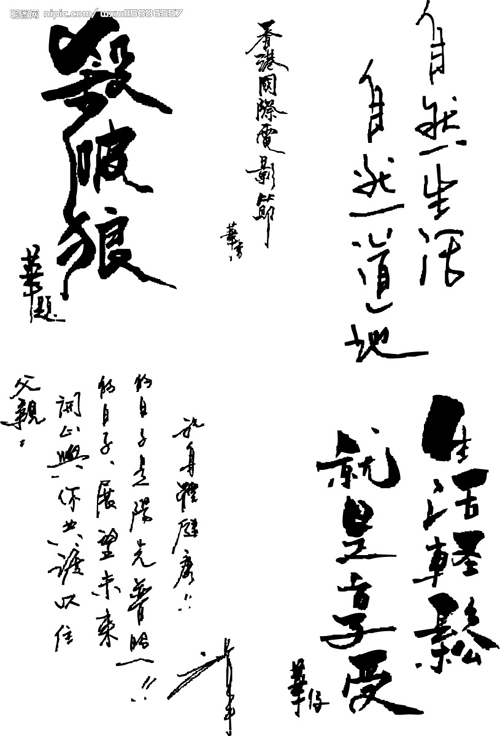 昵图网
殺破狼
華題
香港國際電影節
自然生活
自然道地
父親：
開心與你共渡以往
的日子、展望未來
的日子是陽光普照!!
祝身體健康!!
生活輕鬆
就是享受
華仔